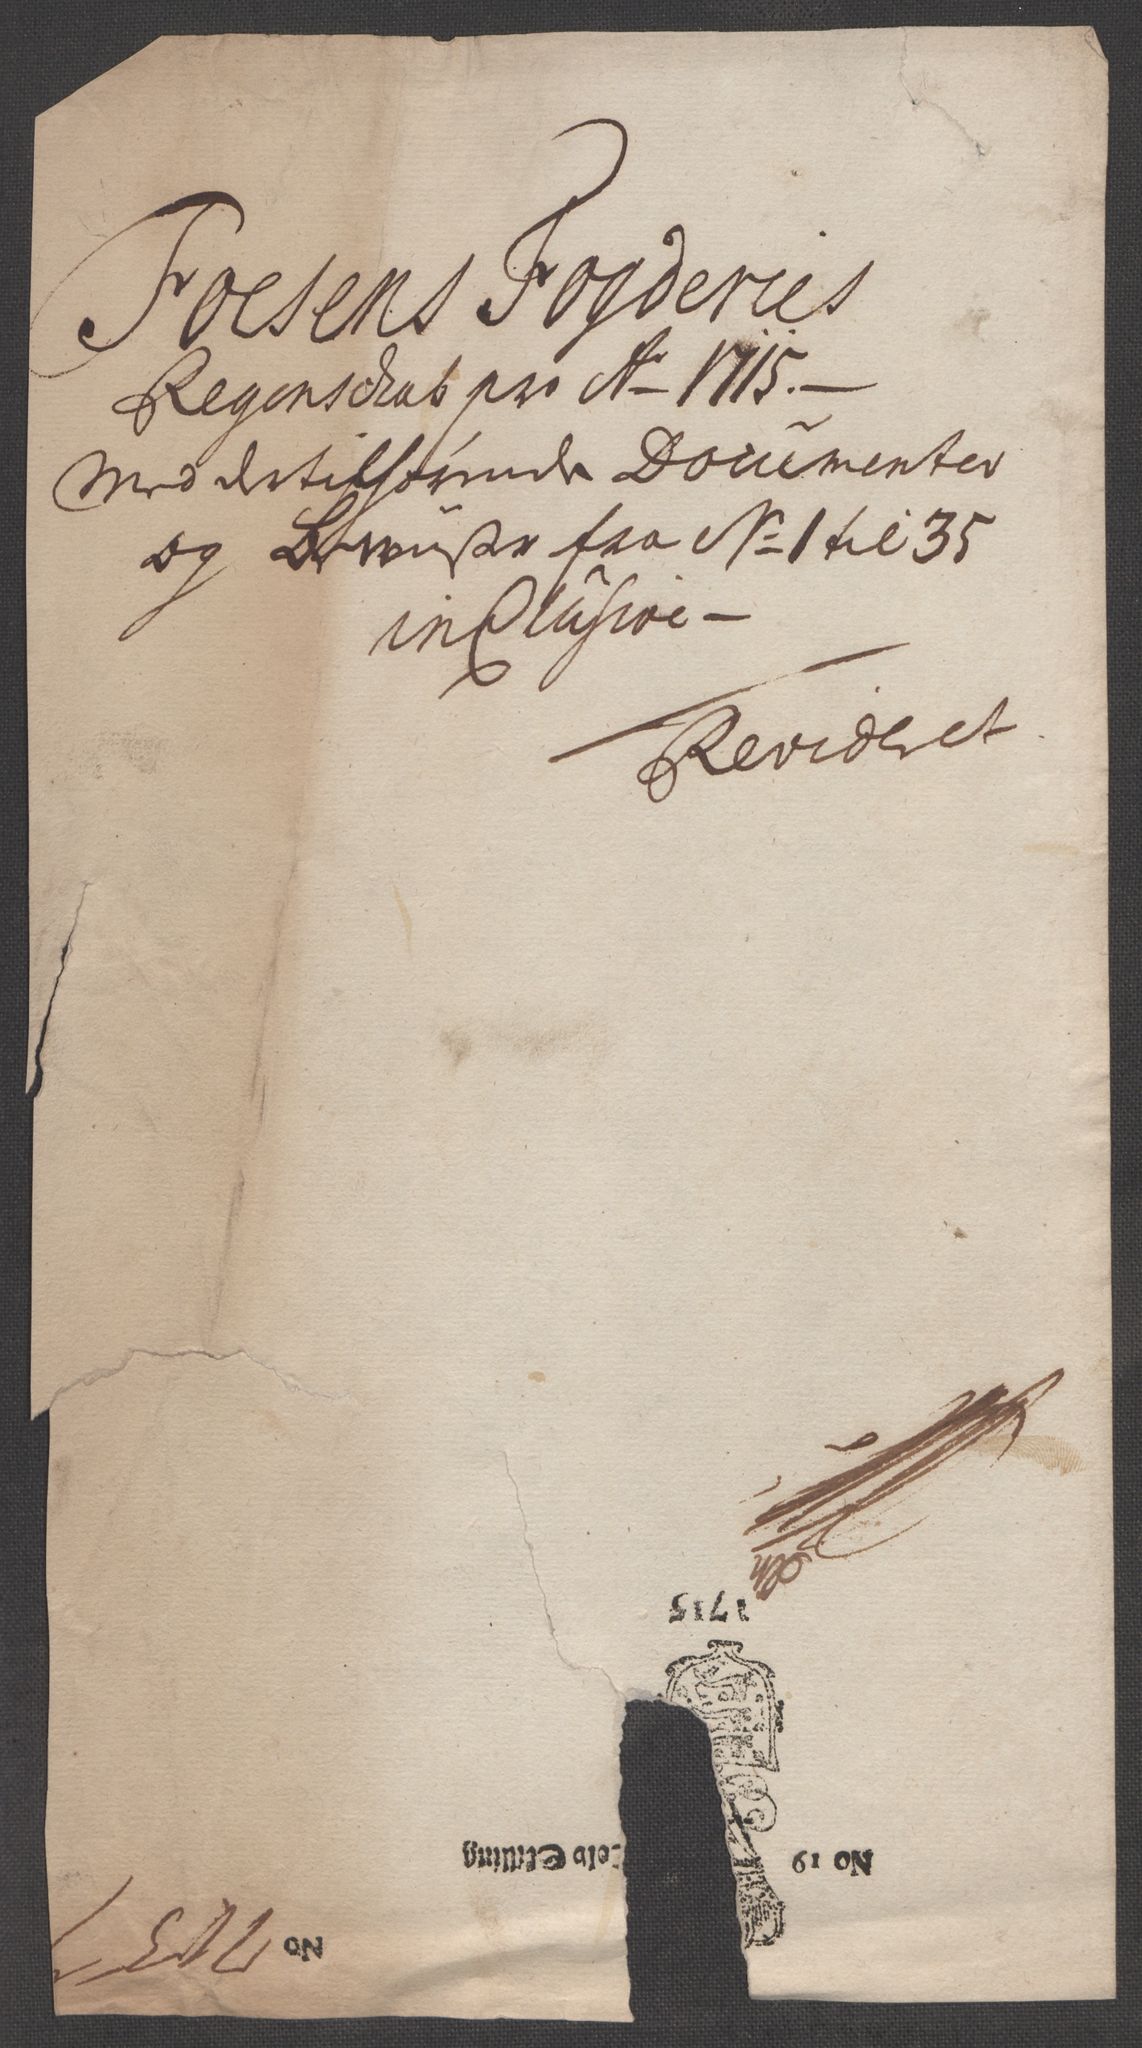 Foesens Fogderies
Regenschab pro Ao 1715.—
Med dertilhörende Documenter
og Bewiiser fra No 1 til 35
inClusive —
Revideret
1715
No 19
Tolv Skilling
No